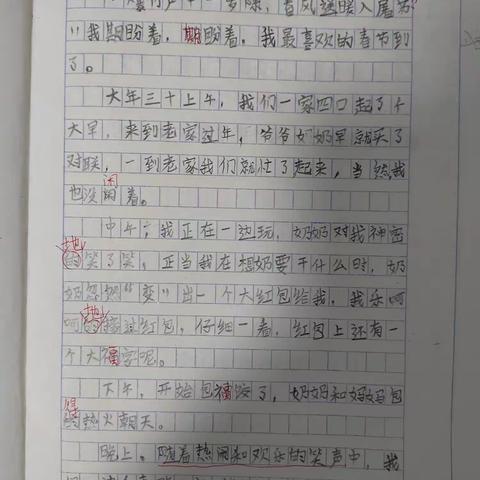 "我期盼着,期盼着,我最喜欢的春节到
了。
大年三十上午,我们一家四口起了个
大早,来到老家过年,爷爷奶奶早就买了
对联,一到老家我们就忙了起来,当然我
也没闲着。
中午,我正在一边玩,奶奶对我神密
地笑了笑,正当我在想奶要干什么时,奶
奶忽然"变"出一个大红包给我,我乐呵
呵地接过红包,仔细一看,红包上还有一
个大福字呢。
下午,开始包福饺了,奶奶和妈妈包
得热火朝天。
晚上,随着热闹和欢乐的笑声中,我